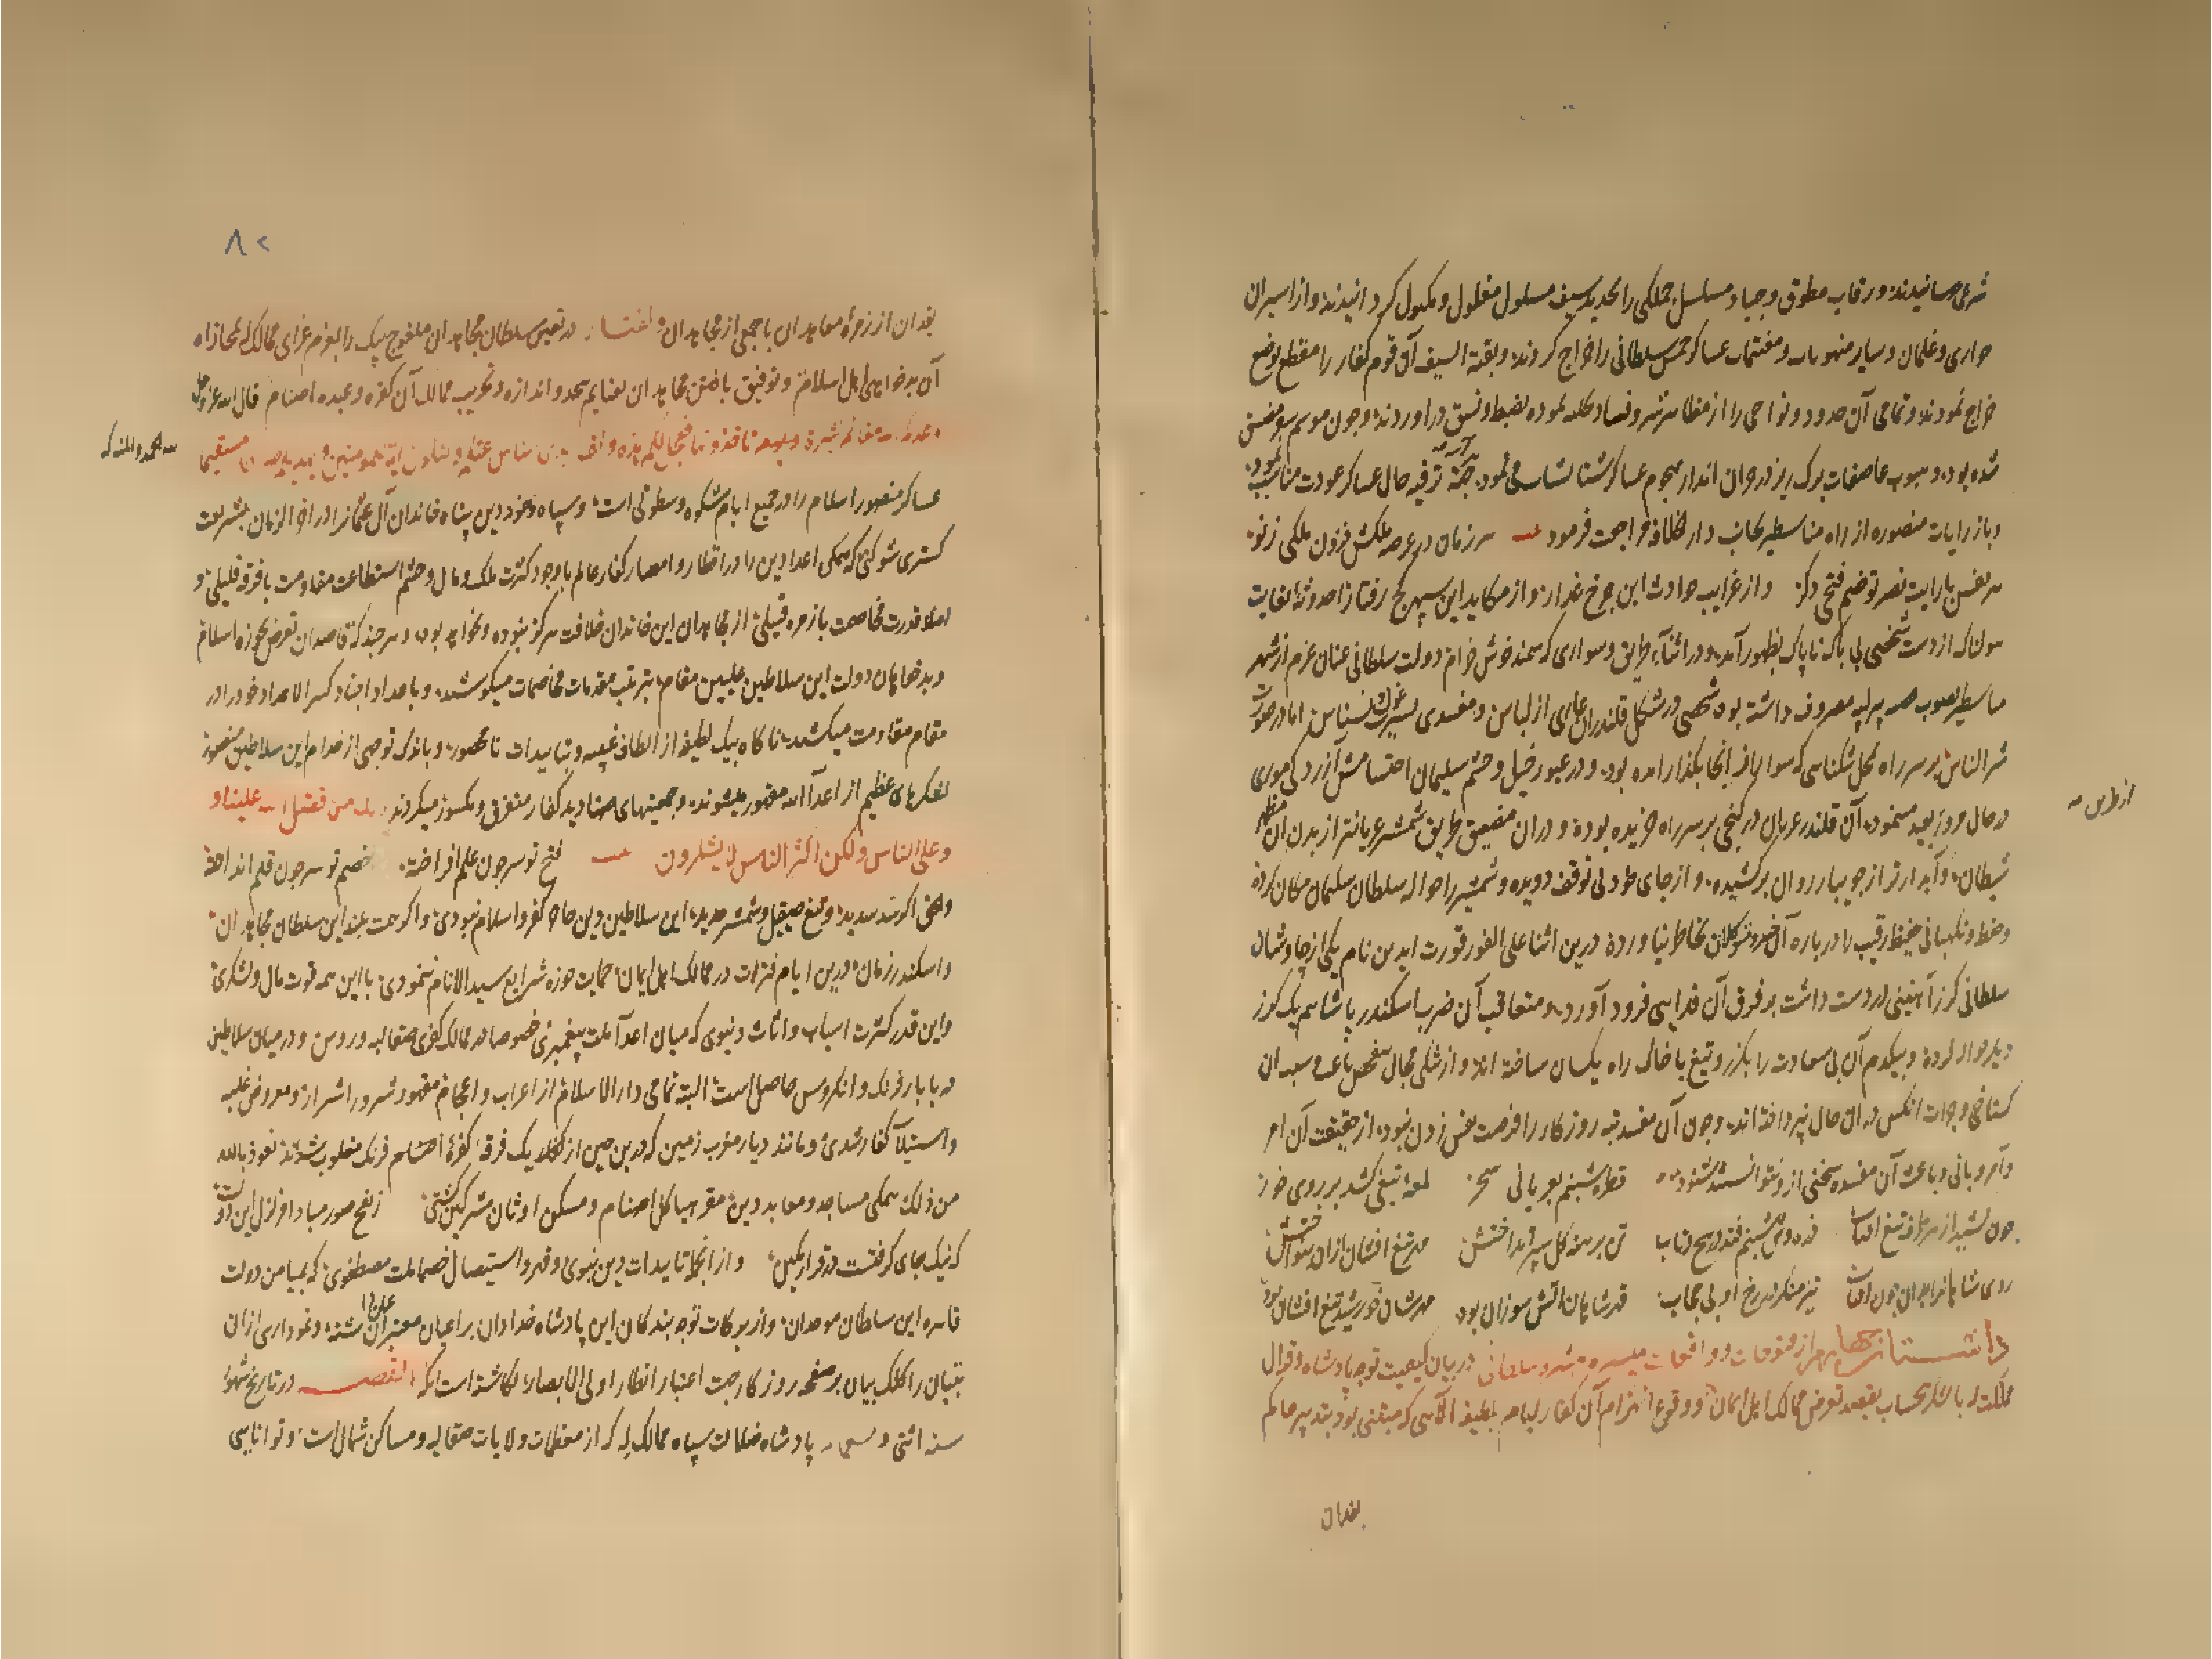 شرعی رسانیدند و رقاب مطوق و جیاد مسلسل جملکی را بحدید سیف مسلول مغلول و مکبول کردانیدند و از اسیران
جواری و غلمان و سایر منهوبات و مغتنمات عساکر خمس سلطانی را اخراج کردند و بقیة السیف آن قوم کفار را مقطع بوضع
خراج نمودند و تمامی آن حدود و نواحی را از مظاهر شر و فساد تخلیه نموده بضبط و نسق دراوردند و چون موسم
شده بود و هبوب عاصفات برک ریز خزان انذار هجوم عساکر شتا شناسی می نمود جهة ترفیه حال عساکر عودت مناسب نمود
و باز رایات منصوره از راه مناسطیر بجانب دار الخلافه مراجعت فرمود هر زمان در عرصه ملکش فزون ملکی ز نو
هر نفس با رایت نصر تو ضم فتحی دکر و از غرایب حوادث این چرخ غدار و از مکاید این سپهر کج رفتار احدوثه بغایت
هولناک از دست شخصی بی باک ناپاک بظهور آمد و در اثناء طریق و سواری که سمند خوش خرام دولت سلطانی عنان عزم از شهر
مناسطیر بصوب پرلپه معروف داشته بود شخصی در شکل قلندران عاری از لباس و مفسدی بسیرت غول و نسناس اما در صورت
شر الناس بر سر راه
در حال مرور بعید مینمود آن قلندر عریان در کنجی بر سر راه خزیده بود و در ان مضیق طریق شمشیر عریانتر از بدن ان مظهر
شیطان و آبدارتر از جویبار روان برکشیده و از جای خود بی توقف دویده و شمشیر را حواله سلطان سلیمان مکان کرده
و حفظ و نکهبانی حفیظ رقیب را درباره آن بخاطر نیاورده درین اثنا علی الفور قورت ایدین نام یکی از چاوشان
سلطانی کرز آهنینی در دست داشت بر فرق آن فدایی فرود آورد و متعاقب آن ضرب اسکندر پاشا هم یک کرز
دیکر حواله کرده و بیکدم آن بی سعادت را بکرز و تیغ با خاک راه یکسان ساخته اند و از تنکی مجال تفحص باعث و سبب ان
کستاخی و جرات انکس در ان حال نپرداخته اند و چون آن مفسد تبه روزکار را فرصت نفس زدن نبود از حقیقت آن امر
و آمر و بانی و باعث آن مفسده سخنی ازو نتوانستند شنود قطره شبنم بعریانی سحر لمعه تیغی کشد بر روی خور
چون کشید از هر طرف تیغ افتاب
روی شاهانرا بدان چون افتاب تیز منکر در رخ او بی حجاب قدر شاهان آتش سوزان بود مهر شان خورشید تیغ افشان بود
داستان چهارم از فتوحات و واقعات میسره سلطانی در بیان کیفیت توجه پادشاه و قرال
مملکت له با لشکر بیحساب بقصد تعرض ممالک اهل ایمان و وقوع انهزام آن کفار لطیفه الهی که مبتنی بود بتدبیر حاکم
بغدان
از طرفی
٨٢
بغدان از زمره معاهدان با جمعی از مجاهدان در تعیین سلطان مجاهدان ملقوج بیک را بعزم غزای ممالک له بمجازاه
آن بدخواهی اهل اسلام و توفیق یافتن مجاهدان بغنایم بیحد و اندازه و تخریب ممالک آن کفره و عبده اصنام قال الله عز و جل
وعدکم الله مغانم کثیرة تاخذونها فعجل لکم هذه و کف ایدی الناس عنکم و لتکون آیة للمومنین و یهدیکم صراطا مستقیما
لله الحمد و المنه که
عساکر منصور اسلام را در جمیع ایام شکوه و سطوتی است و سپاه و جنود دین پناه خاندان آل عثمانرا در اخر الزمان بشریعت
کستری شوکتی که همکی اعدا دین را در اقطار و امصار کفار عالم با وجود کثرت ملک و مال و حشم استطاعت مقاومت با فرقه قلیلی و
اصلا قدرت مخاصمت با زمره قبیلی از مجاهدان این خاندان خلافت هرکز نبوده و نخواهد بود و هر چند که قاصدان تعرض بحوزه اسلام
و بدخواهان دولت این سلاطین علیین مقام بترتیب مقدمات مخاصمات میکوشند و باعداد اجناد کسر الاعداد خود را در
مقام مقاومت میکشند ناکاه بیک لطیفه از الطاف غیبیه و تاییدات نامحصور و باندک توجهی از خدام این سلاطین منصور
لشکرهای عظیم از اعدآ الله مقهور میشوند و جمعیتهای صنادید کفار متفرق و مکسور میکردند ذلک من فضل الله علینا و
علی الناس ولکن اکثر الناس لا یشکرون فتح تو سر چون علم افراخته خصم تو سر چون قلم انداخته
والحق اکر سد سدید و تیغ صیقل و شمشیر حدید این سلاطین دین حاجز کفر و اسلام نبودی و اکر همت بلند این سلطان مجاهدان
و اسکندر زمان درین ایام فترات در ممالک اهل ایمان حمایت حوزه شرایع سید الانام ننمودی با این همه قوت مال و لشکری
و این قدر کثرت اسباب و اثاث دنیوی که میان اعدآ ملت پیغمبری خصوصا در ممالک کفری صقالبه و روس و در میان سلاطین
دیار فرنک و انکروس حاصل است البته تمامی دار الاسلام از اعراب و اعجام مقهور شرور اشرار و معروض غلبه
و استیلآ کفار شدی و مانند دیار مغرب زمین که درین حین از کفار یک فرقه کفره اختتام فرنک مغلوب شدند نعوذ بالله
من ذلک همکی مساجد و معابد دین مقر هیاکل اصنام و مسکن اوثان مشرکین کشتی ز نفخ صور مبادا تزلزل این دولت
که نیک جای کرفتست در قرار مکین و از انجمله تاییدات دین نبوی و قهر و استیصال خصمای ملت مصطفوی که بمیامن دولت
قاهره این سلطان موحدان و از برکات توجه بندکان این پادشاه خدادان بر اعیان معتبران عیان شده و نموداری از ان
بتبیان را کلک بیان بر صفحه روزکار جهت اعتبار انظار اولی الابصار نکاشته است آنکه القصه در تاریخ شهور
سنه اثنی و تسعمایه پادشاه ضلالت سپاه ممالک له که از معظمات ولایات صقالبه و مساکن شمال است و توانایی